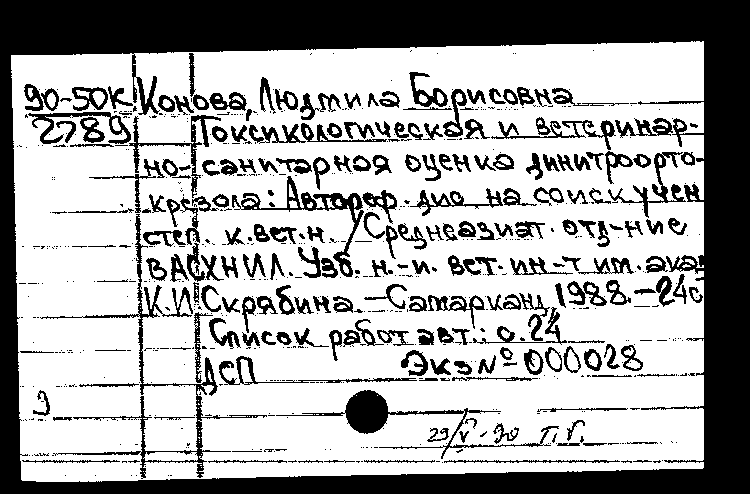 90-50К Конова, Людмила Борисовна
2789 Токсикологическая и ветеринар-
но-санитарная оценка динитроорто-
крезола: Автореф. дис. на соиск учен
степ. к.вет.н. / Среднеазиат. отд-ние
ВАСХНИЛ. Узб. н.-и. вет. ин-т им. акад
К.И Скрябина. - Самарканд, 1988. - 24с
Список работ авт.: с. 24
ДСП Экз № 000028
Э
29/V-90 Т.Г.